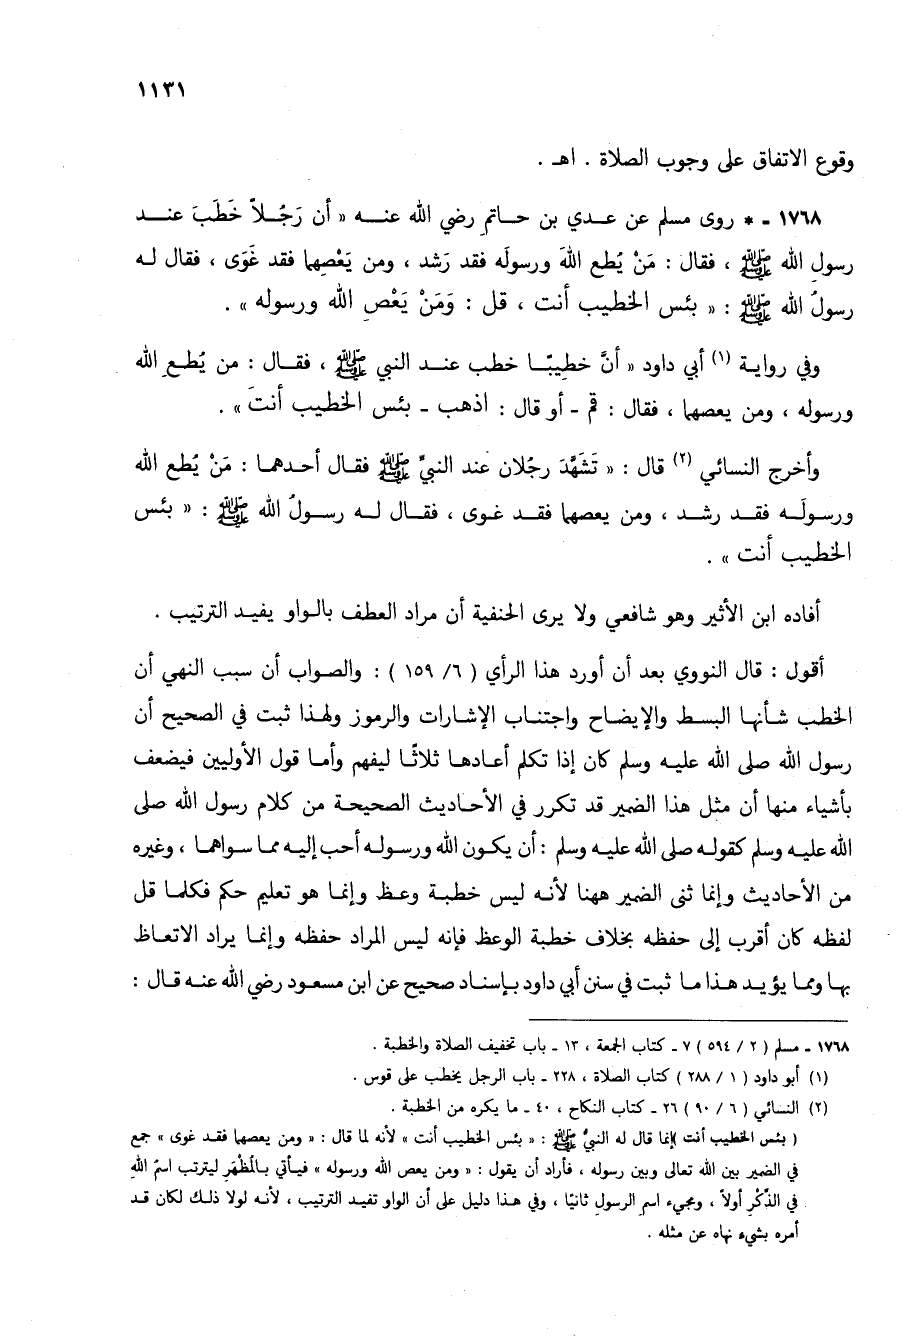 ١١٣١
وقوع الاتفاق على وجوب الصلاة . اهـ .
١٧٦٨ ـ * روى مسلم عن عدي بن حاتم رضي الله عنه « أن رَجُلاً خَطَبَ عند
رسول الله ﷺ ، فقال : مَنْ يُطع اللهَ ورسولَه فقد رَشد ، ومن يَعْصِها فقد غَوَى ، فقال له
رسولُ الله ﷺ : « بئس الخطيب أنت ، قل : وَمَنْ يَعْصِ الله ورسوله » .
وفي رواية (١) أبي داود « أنَّ خطيبًا خطب عند النبي ﷺ ، فقال : من يُطع الله
ورسوله ، ومن يعصهما ، فقال : قم ـ أو قال : اذهب ـ بئس الخطيب أنتَ » .
وأخرج النسائي (٢) قال : « تَشَهَّدَ رجُلان عند النبيِّ ﷺ فقال أحدهما : مَنْ يُطع الله
ورسولَه فقد رشد ، ومن يعصهما فقد غوى ، فقال له رسولُ الله ﷺ : « بئس
الخطيب أنت » .
أفاده ابن الأثير وهو شافعي ولا يرى الحنفية أن مراد العطف بالواو يفيد الترتيب .
أقول : قال النووي بعد أن أورد هذا الرأي ( ٦/ ١٥٩ ) : والصواب أن سبب النهي أن
الخطب شأنها البسط والإيضاح واجتناب الإشارات والرموز ولهذا ثبت في الصحيح أن
رسول الله صلى الله عليه وسلم كان إذا تكلم أعادها ثلاثًا ليفهم وأما قول الأوليين فيضعف
بأشياء منها أن مثل هذا الضمير قد تكرر في الأحاديث الصحيحة من كلام رسول الله صلى
الله عليه وسلم كقوله صلى الله عليه وسلم : أن يكون الله ورسوله أحب إليه مما سواهما ، وغيره
من الأحاديث وإنما ثنى الضمير ههنا لأنه ليس خطبة وعظ وإنما هو تعليم حكم فكلما قل
لفظه كان أقرب إلى حفظه بخلاف خطبة الوعظ فإنه ليس المراد حفظه وإنما يراد الاتعاظ
بها ومما يؤيد هذا ما ثبت في سنن أبي داود بإسناد صحيح عن ابن مسعود رضي الله عنه قال :
١٧٦٨ ـ مسلم ( ٢ / ٥٩٤ ) ٧ ـ كتاب الجمعة ، ١٣ ـ باب تخفيف الصلاة والخطبة .
(١) أبو داود ( ١ / ٢٨٨ ) كتاب الصلاة ، ٢٢٨ ـ باب الرجل يخطب على قوس .
(٢) النسائي ( ٦ / ٩٠ ) ٢٦ ـ كتاب النكاح ، ٤٠ ـ ما يكره من الخطبة .
( بئس الخطيب أنت )إنما قال له النبيُّ ﷺ : « بئس الخطيب أنت » لأنه لما قال : « ومن يعصهما فقد غوى » جمع
في الضمير بين الله تعالى وبين رسوله ، فأراد أن يقول : « ومن يعص الله ورسوله » فيأتي بالمُظْهَرِ ليترتب اسمُ اللهِ
في الذِّكْرِ أولاً ، ومجيء اسم الرسولِ ثانيًا ، وفي هذا دليل على أن الواو تفيد الترتيب ، لأنه لولا ذلك لكان قد
أمره بشيء نهاه عن مثله .